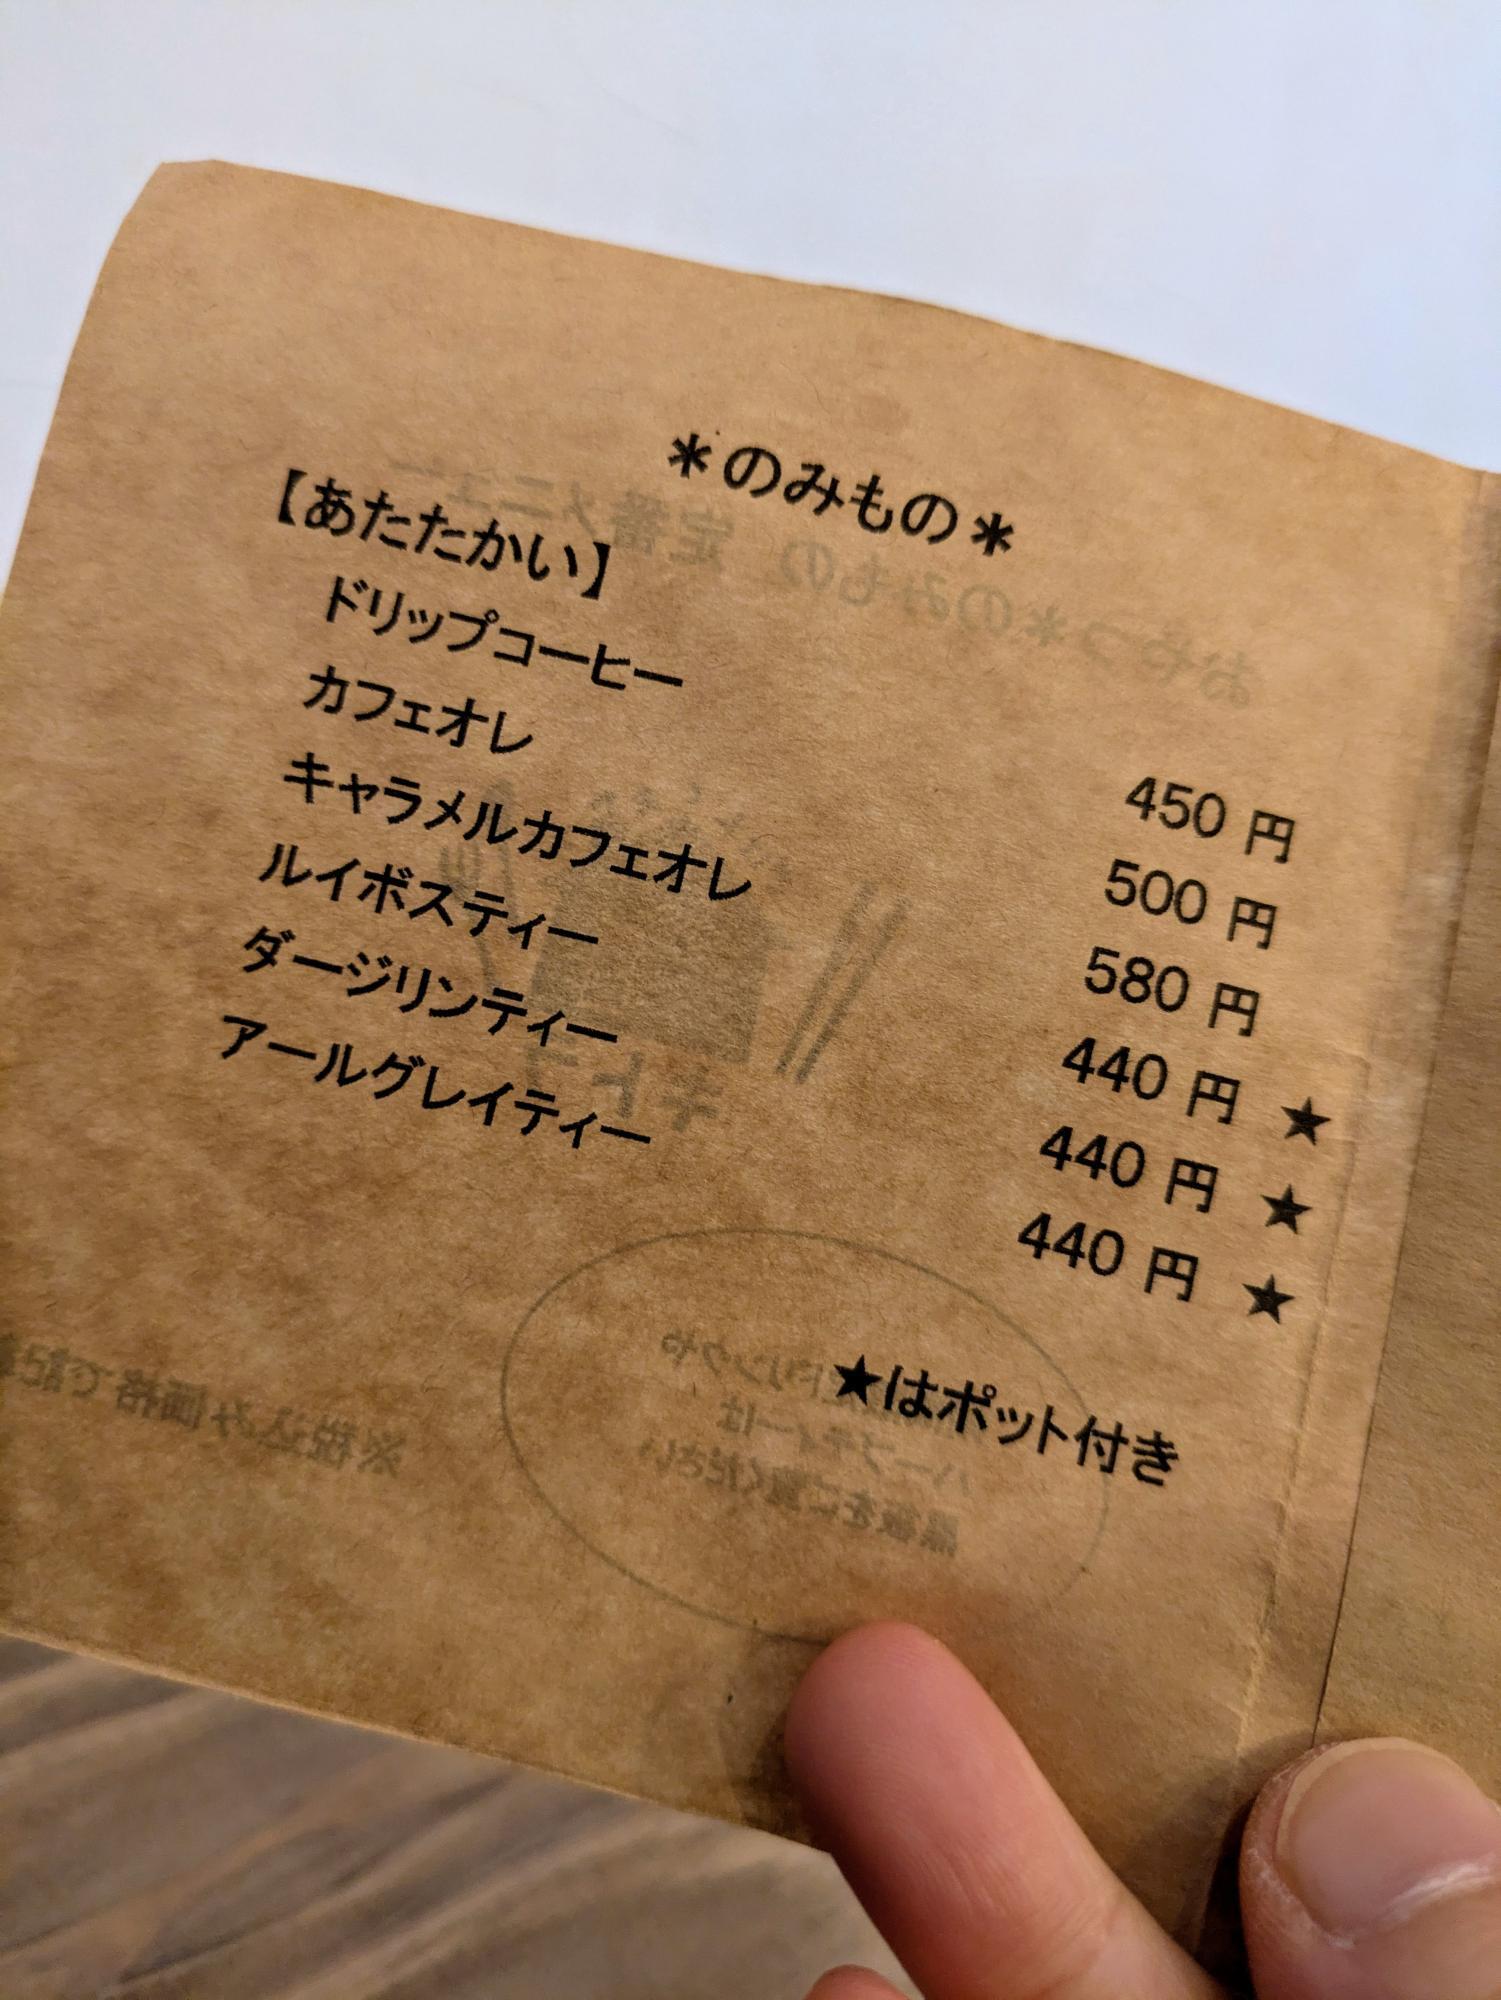 ＊のみもの＊
【あたたかい】
ドリップコーヒー 450 円
カフェオレ 500 円
キャラメルカフェオレ 580 円
ルイボスティー 440 円 ★
ダージリンティー 440 円 ★
アールグレイティー 440 円 ★
★はポット付き